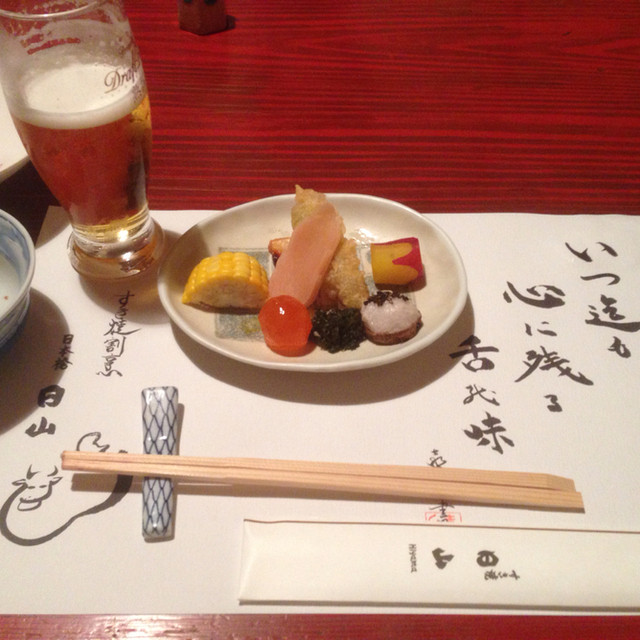 いつ迄も
心に残る
舌の味
すき焼割烹
日本橋
日山
すき焼
日山
Hiyama
Draft